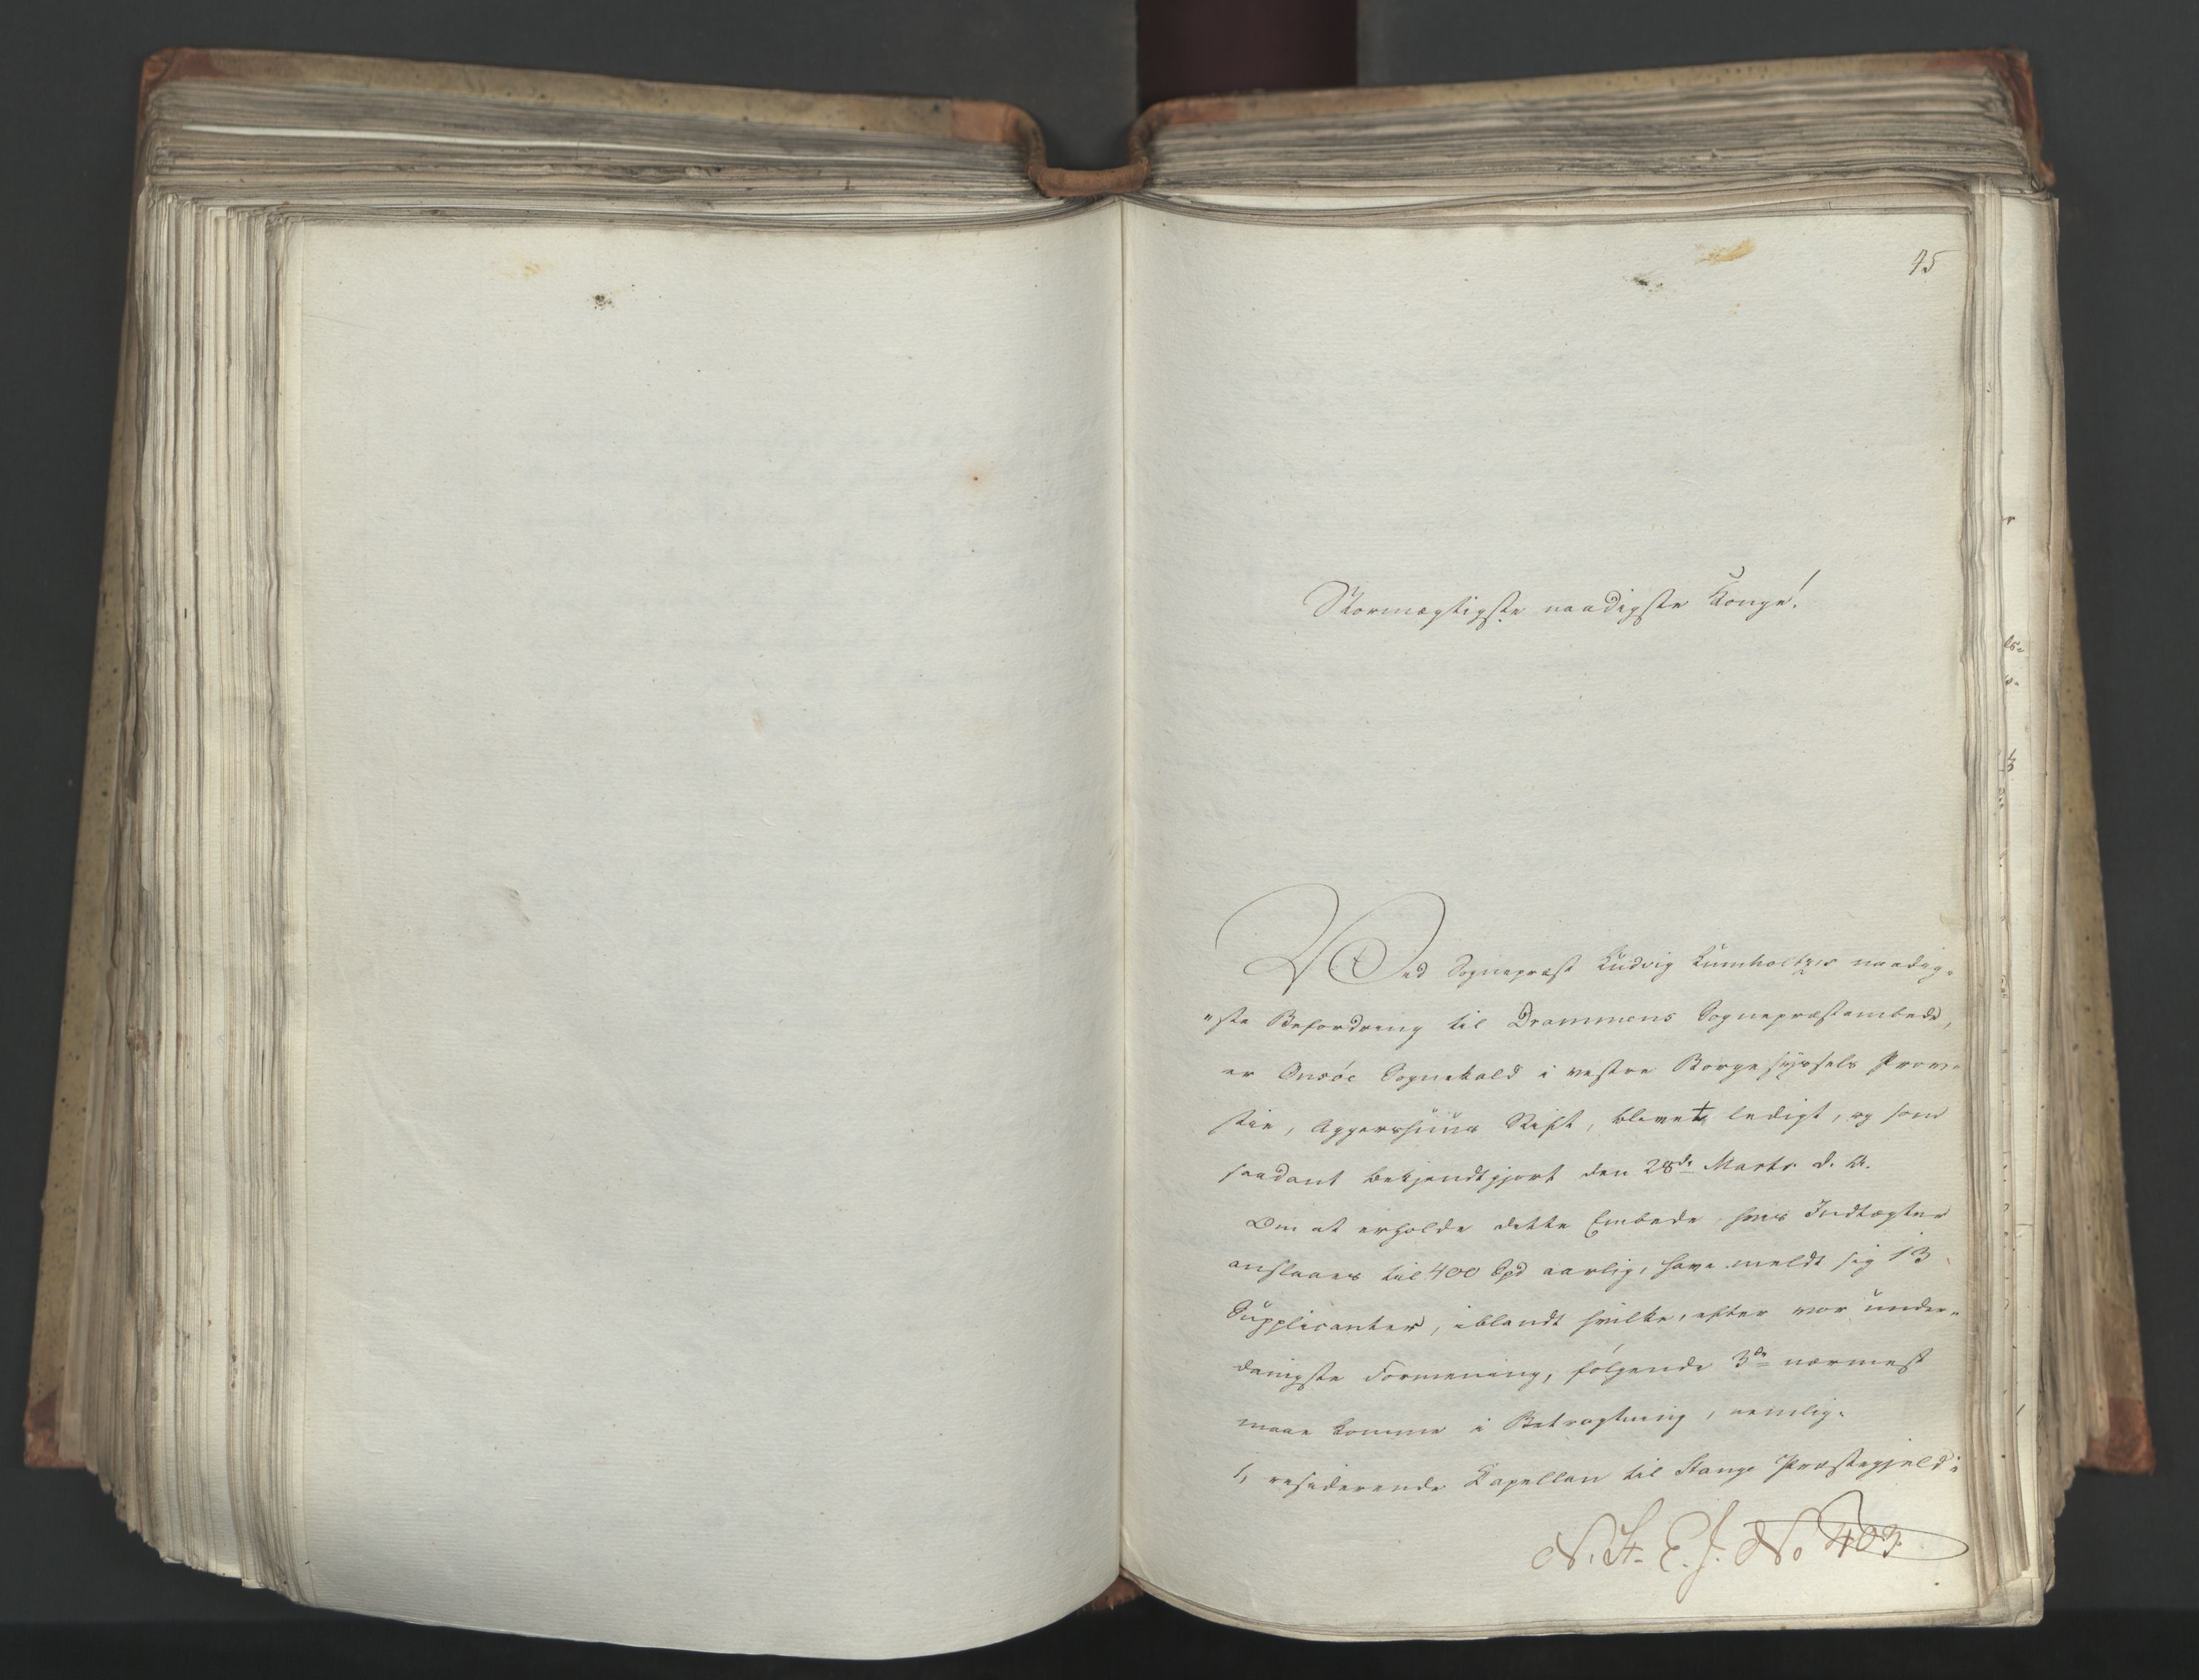 45
Stormægtigste naadigste Konge!
Ved Sognepræst Ludvig Kumholtzes naadig-
"ste Befordring til Drammens Sognepræstembede,
er Onsöe Sognekald i vestre Borgesyssels Prov-
stie, Aggershuus Stift, blevet ledigt, og som
saadant bekjendtgjort den 28de Marts d. A.
Om at erholde dette Embede hvis Indtægter
anslaaes til 400 Spd aarlig, have meldt sig 13
Supplicanter, iblandt hvilke, efter vor under-
danigste Formening, følgende 3de nærmest
maae komme i Betragtning, nemlig:
1, residerende Capellan til Stange Præstegjeld i
N. St. E. J. No 403